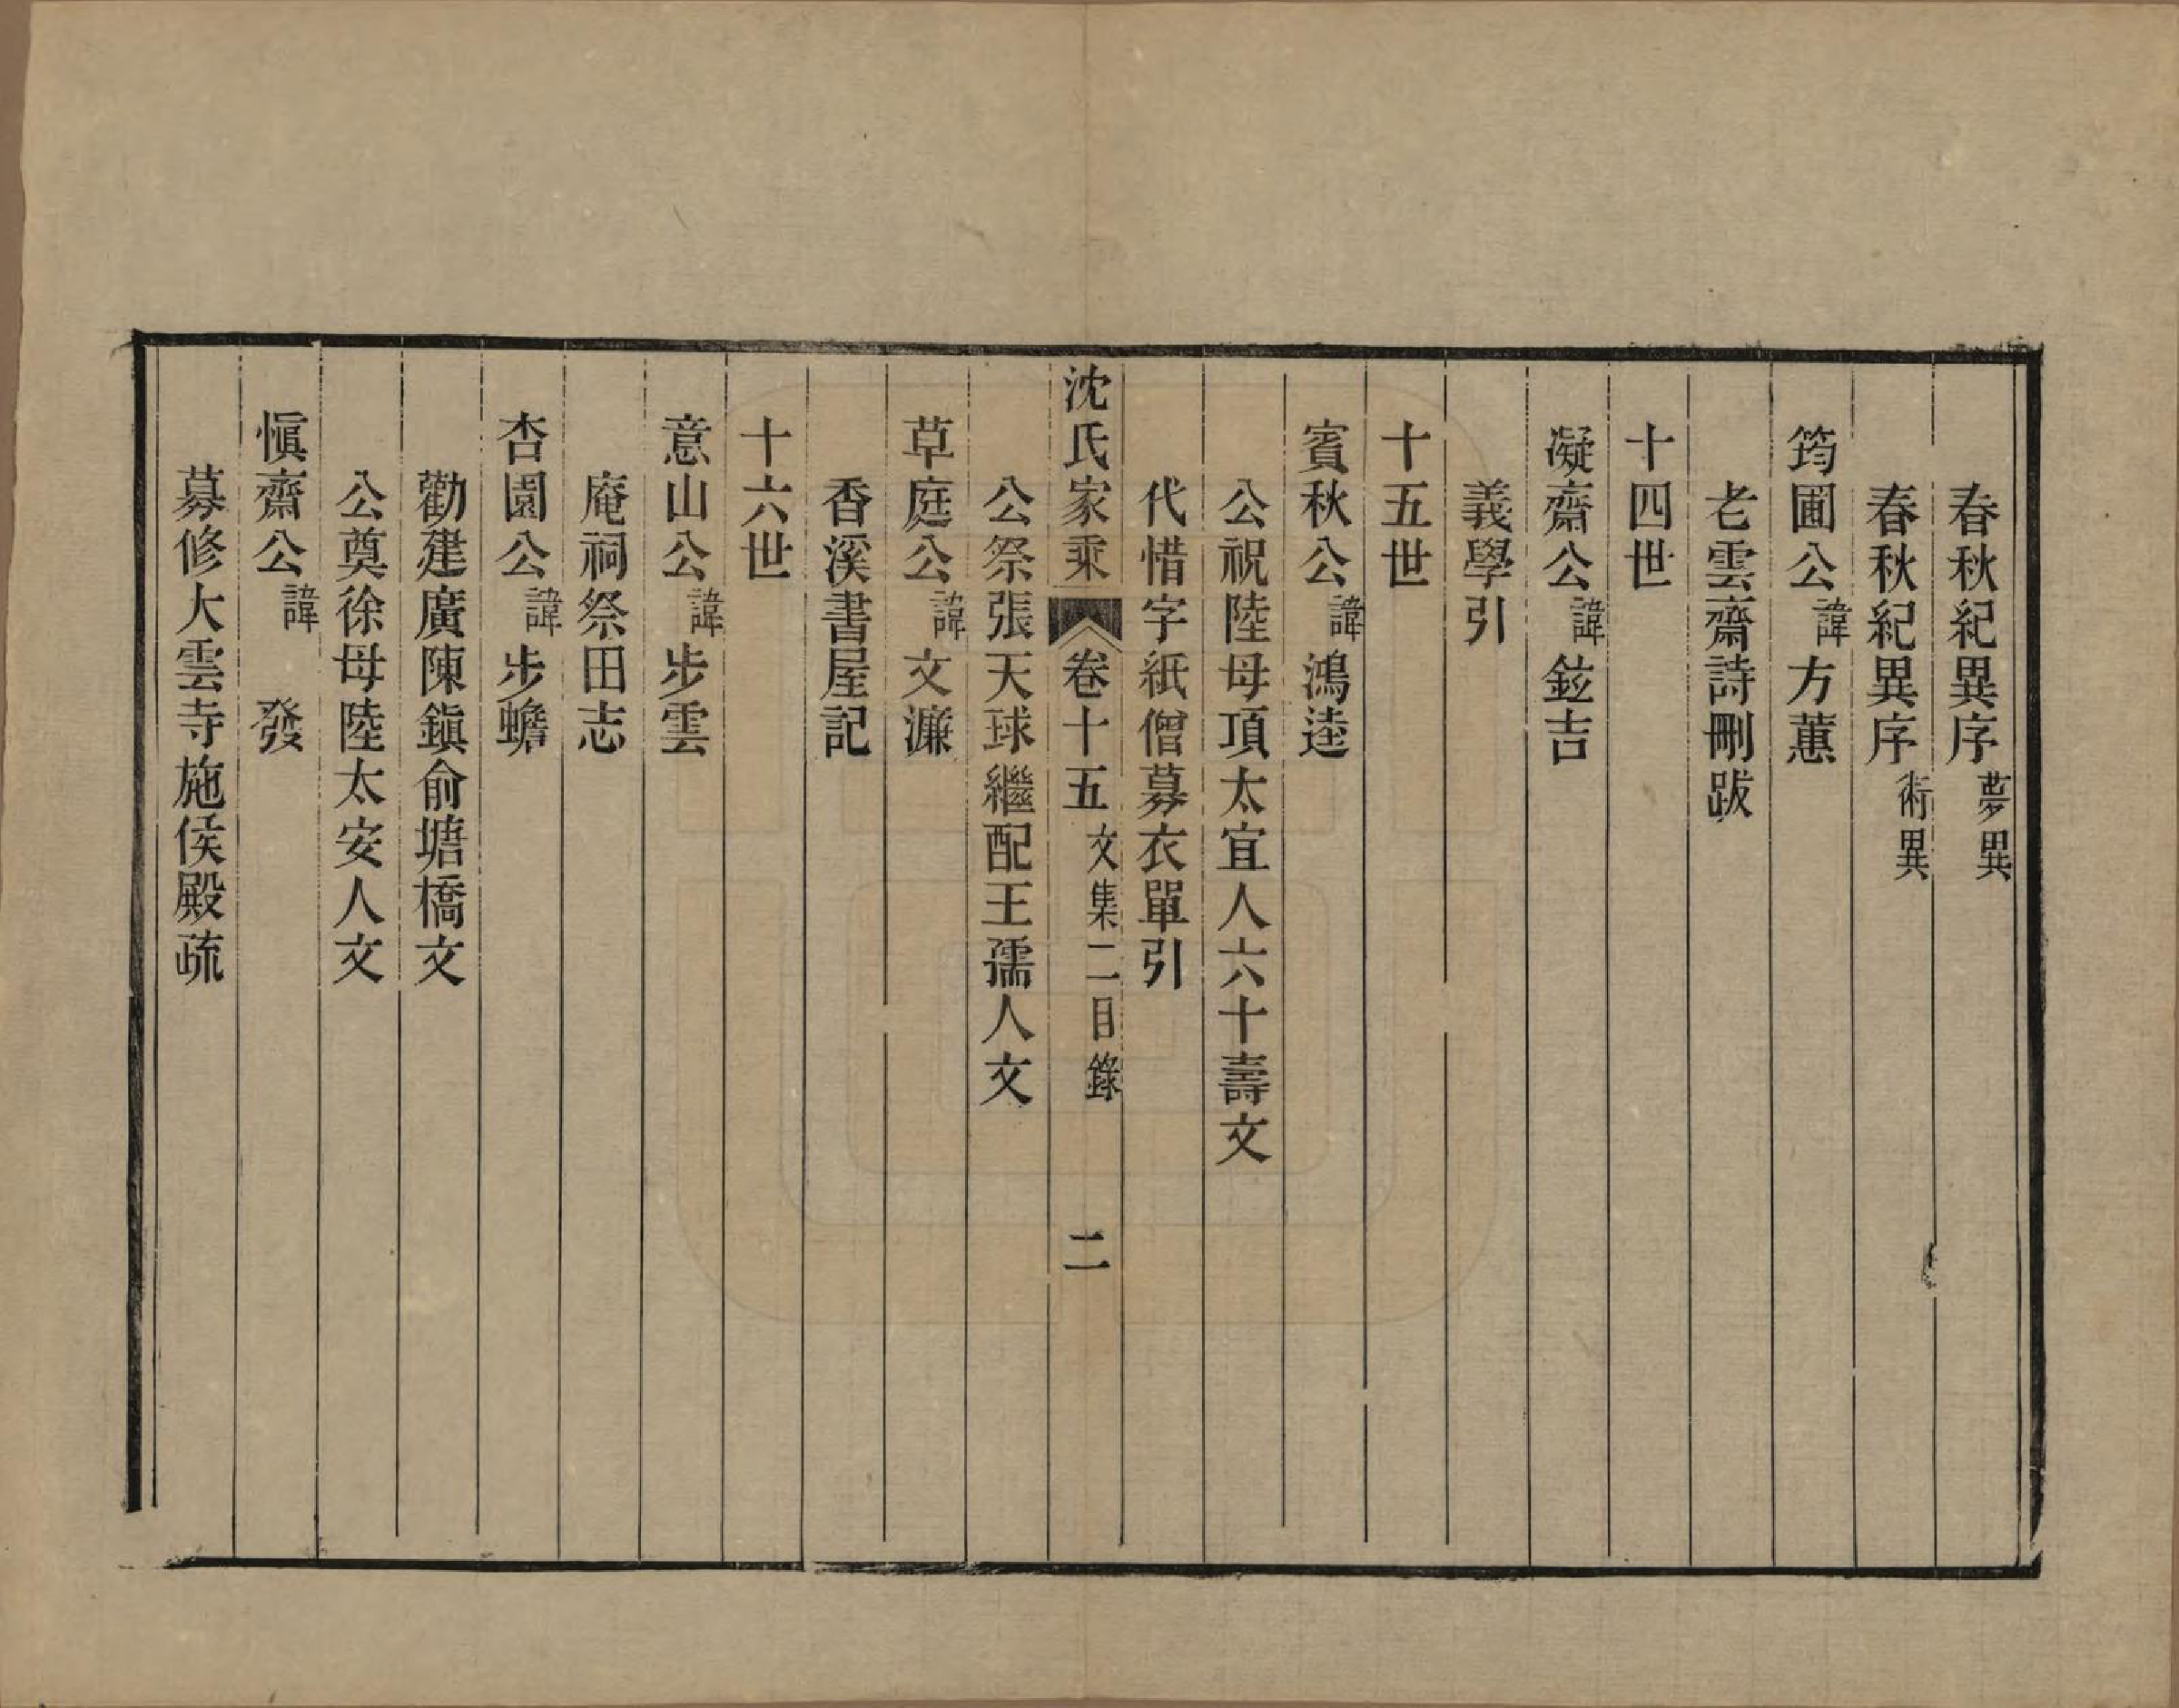 春秋紀異序夢異
春秋紀異序術異
筠圃公諱方蕙
老雲齋詩刪跋
十四世
凝齋公諱鉝吉
義學引
十五世
賓秋公諱鴻逵
公祝陸母項太宜人六十壽文
代惜字紙僧募衣單引
沈氏家乘 卷十五文集二目錄 二
公祭張天球繼配王孺人文
草庭公諱文濂
香溪書屋記
十六世
意山公諱步雲
庵祠祭田志
杏園公諱步蟾
勸建廣陳鎮俞塘橋文
公奠徐母陸太安人文
慎齋公諱 發
募修大雲寺施侯殿疏